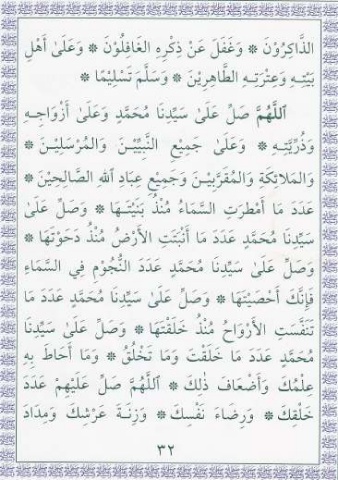 الذَّاكِرُوْنَ ❊ وَغَفَلَ عَنْ ذِكْرِهِ الغَافِلُوْنَ ❊ وَعَلَىٰ أَهْلِ
بَيْتِـهِ وَعِتْرَتِـهِ الطَّاهِرِيْنَ ❊ وَسَلَّمَ تَسْلِيْمًا ❊
اَللَّهُمَّ صَلِّ عَلَىٰ سَيِّدِنَا مُحَمَّدٍ وَعَلَىٰ أَزْوَاجِـهِ
وَذُرِّيَّتِـهِ ❊ وَعَلَىٰ جَمِيْعِ النَّبِيِّيْـنَ وَالْمُرْسَلِيْـنَ ❊
وَالمَلَائِكَةِ وَالمُقَرَّبِيْنَ وَجَمِيْعِ عِبَادِ اللهِ الصَّالِحِيْنَ ❊
عَدَدَ مَا أَمْطَرَتِ السَّمَاءُ مُنْذُ بَنَيْتَـهَا ❊ وَصَلِّ عَلَىٰ
سَيِّدِنَا مُحَمَّدٍ عَدَدَ مَا أَنْبَتَتِ الأَرْضُ مُنْذُ دَحَوْتَهَا ❊
وَصَلِّ عَلَىٰ سَيِّدِنَا مُحَمَّدٍ عَدَدَ النُّجُوْمِ فِي السَّمَاءِ
فَإِنَّكَ أَحْصَيْتَهَا ❊ وَصَلِّ عَلَىٰ سَيِّدِنَا مُحَمَّدٍ عَدَدَ مَا
تَنَفَّسَتِ الأَرْوَاحُ مُنْذُ خَلَقْتَهَا ❊ وَصَلِّ عَلَىٰ سَيِّدِنَا
مُحَمَّدٍ عَدَدَ مَا خَلَقْتَ وَمَا تَخْلُقُ ❊ وَمَا أَحَاطَ بِهِ
عِلْمُكَ وَأَضْعَافَ ذٰلِكَ ❊ اَللَّهُمَّ صَلِّ عَلَيْهِمْ عَدَدَ
خَلْقِكَ ❊ وَرِضَاءَ نَفْسِكَ ❊ وَزِنَـةَ عَرْشِكَ وَمِدَادَ
٣٢